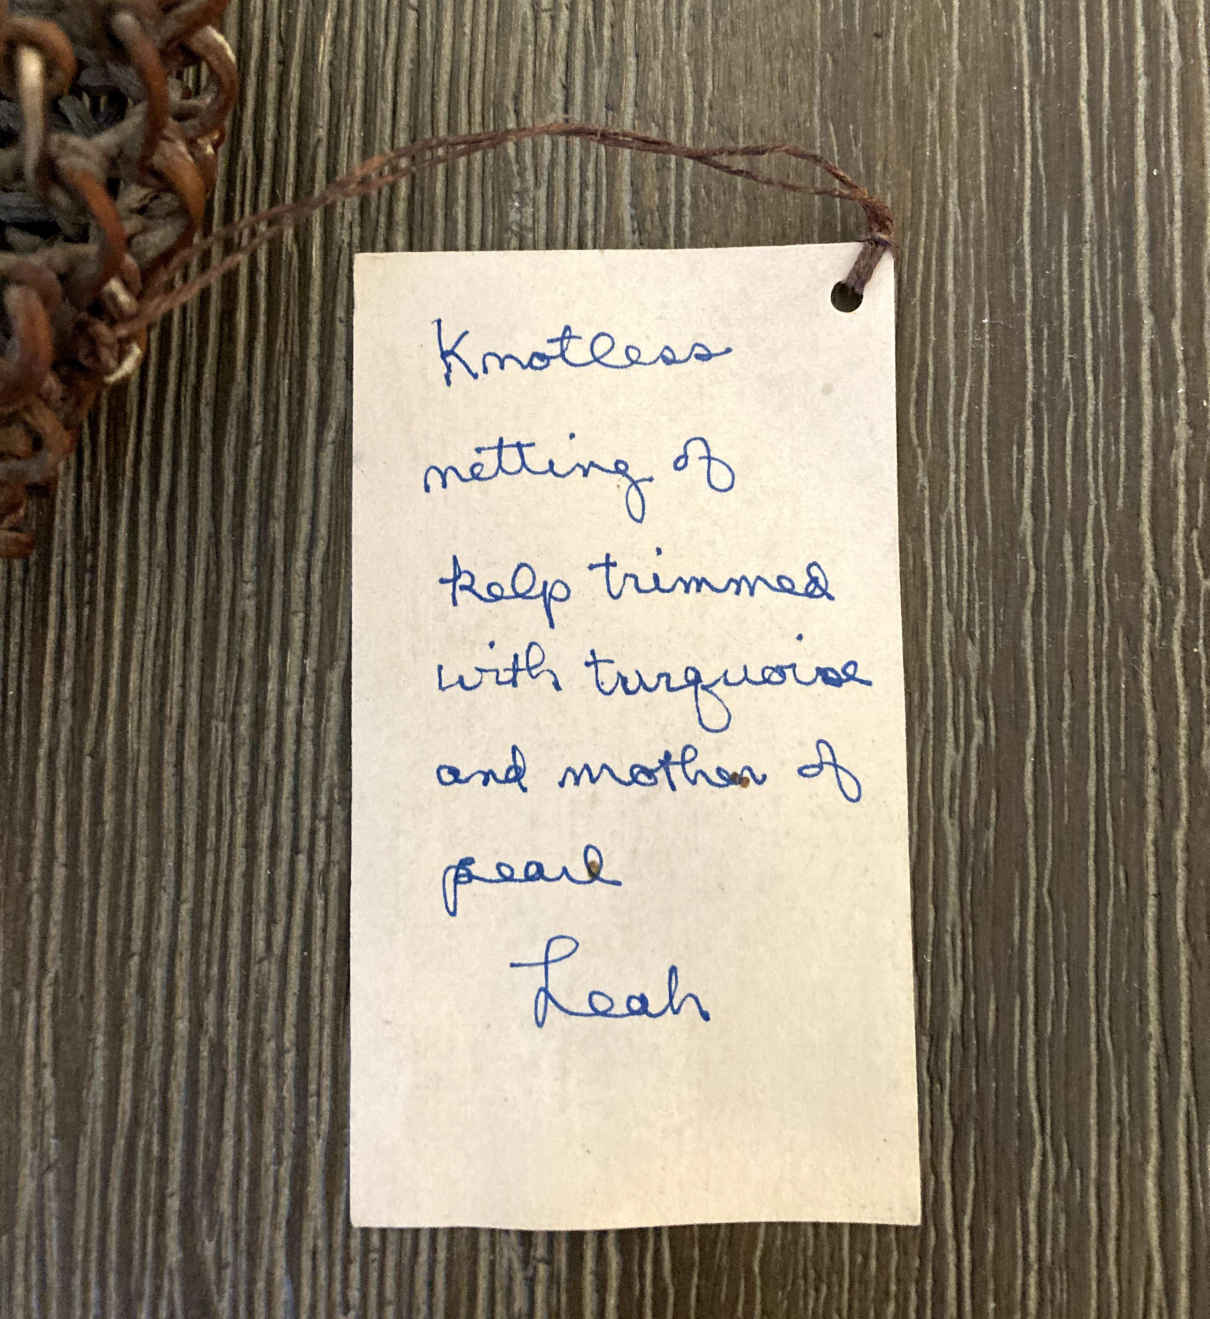 Knotless
netting of
kelp trimmed
with turquoise
and mother of
pearl
Leah